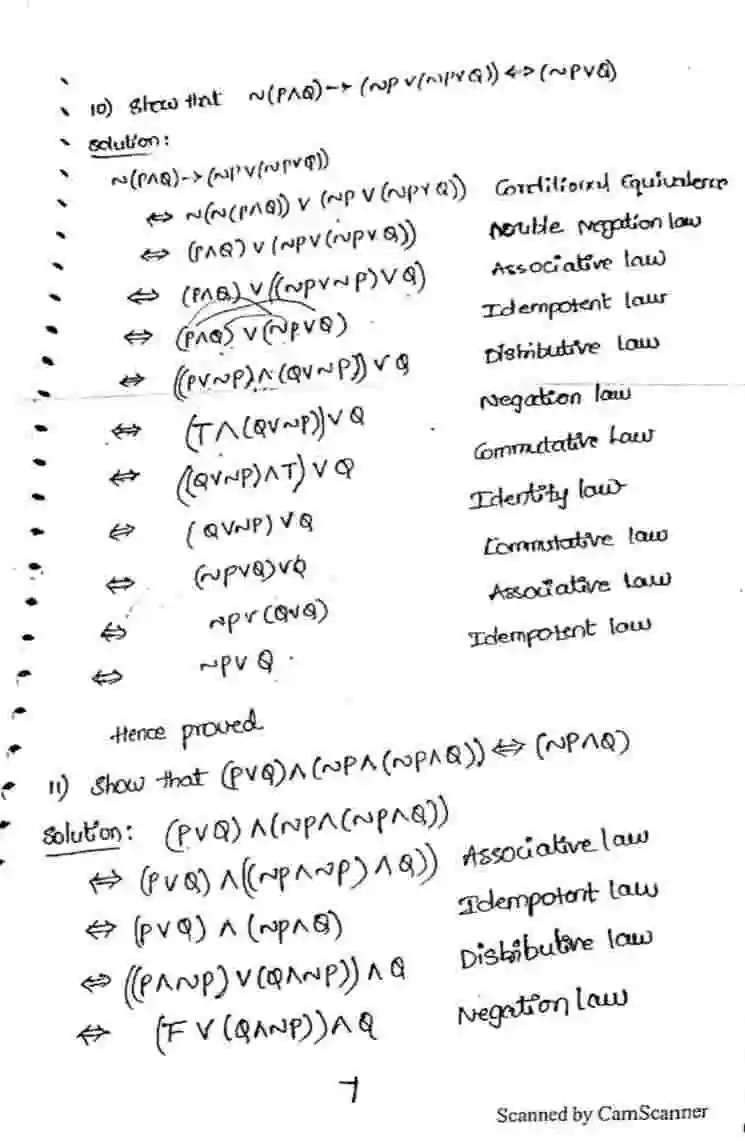 10) Show that ~(P∧Q)→(~P∨(~P∨Q))⇔(~P∨Q)
Solution:
~(P∧Q)→(~P∨(~P∨Q))
⇔ ~(~(P∧Q))∨(~P∨(~P∨Q)) Conditional Equivalence
⇔ (P∧Q)∨(~P∨(~P∨Q)) Double Negation law
⇔ (P∧Q)∨((~P∨~P)∨Q) Associative law
⇔ (P∧Q)∨(~P∨Q) Idempotent law
⇔ ((P∨~P)∧(Q∨~P))∨Q Distributive law
⇔ (T∧(Q∨~P))∨Q Negation law
⇔ ((Q∨~P)∧T)∨Q Commutative Law
⇔ (Q∨~P)∨Q Identity law
⇔ (~P∨Q)∨Q Commutative law
⇔ ~P∨(Q∨Q) Associative law
⇔ ~P∨Q. Idempotent law
Hence proved
11) Show that (P∨Q)∧(~P∧(~P∧Q))⇔(~P∧Q)
Solution: (P∨Q)∧(~P∧(~P∧Q))
⇔ (P∨Q)∧((~P∧~P)∧Q)) Associative law
⇔ (P∨Q)∧(~P∧Q) Idempotent law
⇔ ((P∧~P)∨(Q∧~P))∧Q Distributive law
⇔ (F∨(Q∧~P))∧Q Negation law
7
Scanned by CamScanner